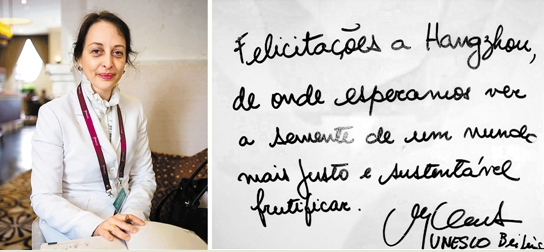 Felicitações a Hangzhou,
de onde esperamos ver
a semente de um mundo
mais justo e sustentável
frutificar.
UNESCO Beijing